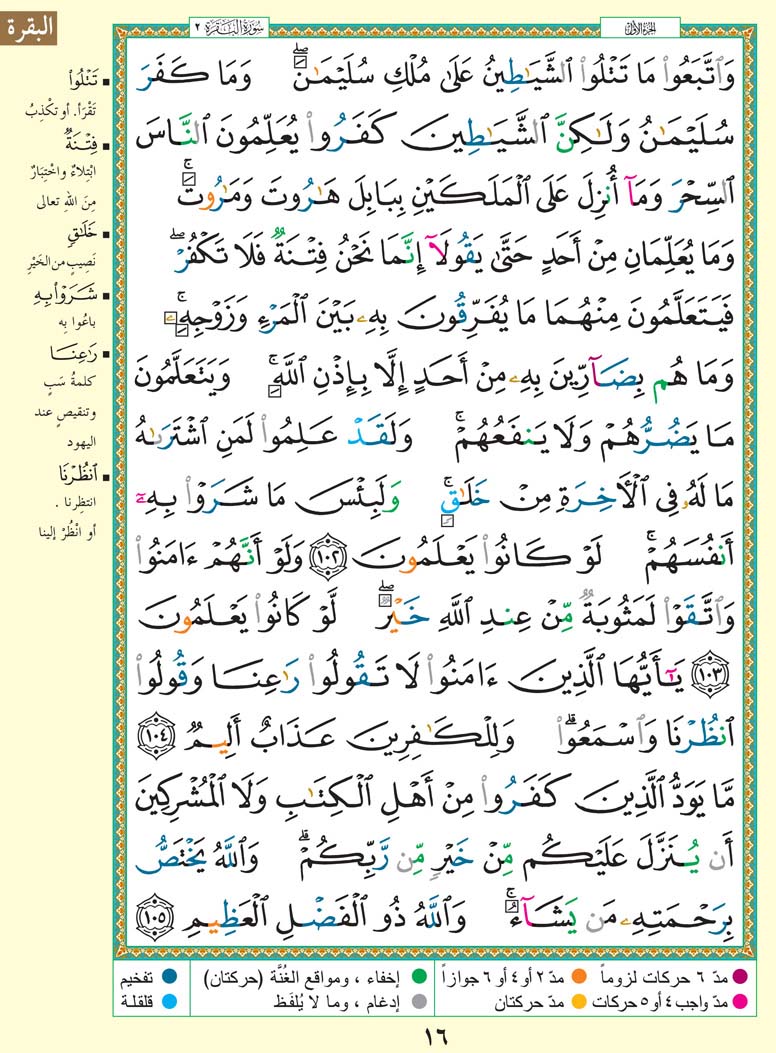 البقرة
سُورَةُ البَقَرَةِ ٢
الجُزْءُ الأَوَّلُ
وَٱتَّبَعُوا۟ مَا تَتْلُوا۟ ٱلشَّيَـٰطِينُ عَلَىٰ مُلْكِ سُلَيْمَـٰنَ ۖ وَمَا كَفَرَ
سُلَيْمَـٰنُ وَلَـٰكِنَّ ٱلشَّيَـٰطِينَ كَفَرُوا۟ يُعَلِّمُونَ ٱلنَّاسَ
ٱلسِّحْرَ وَمَآ أُنزِلَ عَلَى ٱلْمَلَكَيْنِ بِبَابِلَ هَـٰرُوتَ وَمَـٰرُوتَ ۚ
وَمَا يُعَلِّمَانِ مِنْ أَحَدٍ حَتَّىٰ يَقُولَآ إِنَّمَا نَحْنُ فِتْنَةٌ فَلَا تَكْفُرْ ۖ
فَيَتَعَلَّمُونَ مِنْهُمَا مَا يُفَرِّقُونَ بِهِۦ بَيْنَ ٱلْمَرْءِ وَزَوْجِهِۦ ۚ
وَمَا هُم بِضَآرِّينَ بِهِۦ مِنْ أَحَدٍ إِلَّا بِإِذْنِ ٱللَّهِ ۚ وَيَتَعَلَّمُونَ
مَا يَضُرُّهُمْ وَلَا يَنفَعُهُمْ ۚ وَلَقَدْ عَلِمُوا۟ لَمَنِ ٱشْتَرَىٰهُ
مَا لَهُۥ فِى ٱلْـَٔاخِرَةِ مِنْ خَلَـٰقٍ ۚ وَلَبِئْسَ مَا شَرَوْا۟ بِهِۦٓ
أَنفُسَهُمْ ۚ لَوْ كَانُوا۟ يَعْلَمُونَ ١٠٢ وَلَوْ أَنَّهُمْ ءَامَنُوا۟
وَٱتَّقَوْا۟ لَمَثُوبَةٌ مِّنْ عِندِ ٱللَّهِ خَيْرٌ ۖ لَّوْ كَانُوا۟ يَعْلَمُونَ
١٠٣ يَـٰٓأَيُّهَا ٱلَّذِينَ ءَامَنُوا۟ لَا تَقُولُوا۟ رَٰعِنَا وَقُولُوا۟
ٱنظُرْنَا وَٱسْمَعُوا۟ ۗ وَلِلْكَـٰفِرِينَ عَذَابٌ أَلِيمٌ ١٠٤
مَّا يَوَدُّ ٱلَّذِينَ كَفَرُوا۟ مِنْ أَهْلِ ٱلْكِتَـٰبِ وَلَا ٱلْمُشْرِكِينَ
أَن يُنَزَّلَ عَلَيْكُم مِّنْ خَيْرٍ مِّن رَّبِّكُمْ ۗ وَٱللَّهُ يَخْتَصُّ
بِرَحْمَتِهِۦ مَن يَشَآءُ ۚ وَٱللَّهُ ذُو ٱلْفَضْلِ ٱلْعَظِيمِ ١٠٥
▪ تَتْلُوا۟
تَقْرَأ. أو تكْذِبُ
▪ فِتْنَةٌ
ابْتِلاءٌ واخْتِبَارٌ
مِنَ اللهِ تعالى
▪ خَلَـٰقٍ
نَصِيبٍ من الخَيْرِ
▪ شَرَوْا۟ بِهِۦ
باعُوا بِه
▪ رَٰعِنَا
كلمةُ سَبٍّ
وتنقيصٍ عند
اليهود
▪ ٱنظُرْنَا
انتظِرنا .
أو انْظُرْ إلينا
● مدّ ٦ حركات لزوماً ● مدّ ٢ أو ٤ أو ٦ جوازاً ● إخفاء ، ومواقع الغُنَّة (حركتان) ● تفخيم
● مدّ واجب ٤ أو ٥ حركات ● مدّ حركتان ● إدغام ، وما لا يُلفَظ ● قلقلة
١٦